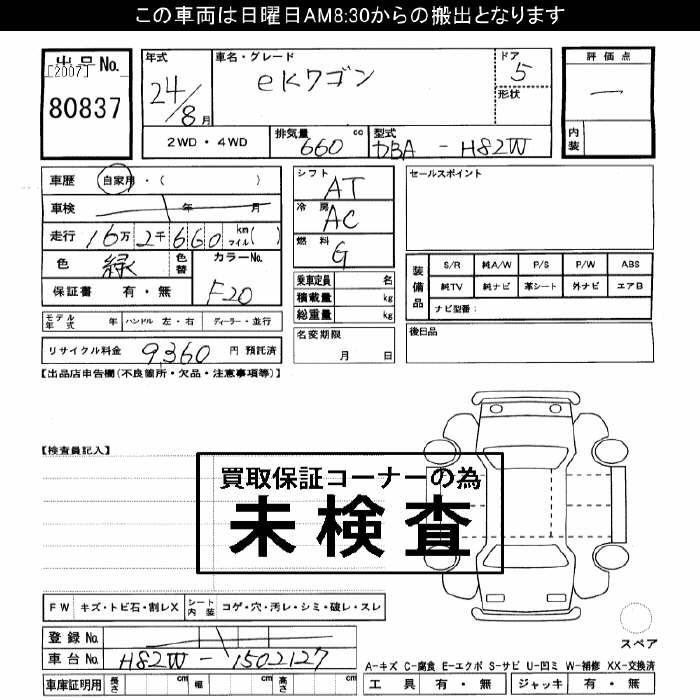 この車両は日曜日AM8:30からの搬出となります
出品No.
[2007]
80837
年式
24/8月
車名・グレード
eKワゴン
ドア
5
形状
評価点
一
内装
2WD・4WD
排気量
660 cc
型式
DBA-H82W
車歴 自家用・( )
車検 年 月
走行 16万2千660 km マイル( )
色 緑 色替 カラーNo.
F20
保証書 有・無
モデル年式 年 ハンドル 左・右 ディーラー・並行
リサイクル料金 9,360 円 預託済
シフト
AT
冷房
AC
燃料
G
乗車定員 名
積載量 kg
総重量 kg
名変期限
月 日
セールスポイント
装備品
S/R 純A/W P/S P/W ABS
純TV 純ナビ 革シート 外ナビ エアB
ナビ型番:
後日品
【出品店申告欄(不良箇所・欠品・注意事項等)】
【検査員記入】
買取保証コーナーの為
未検査
FW キズ・トビ石・割レX シート内装 コゲ・穴・汚レ・シミ・破レ・スレ
登録No.
車台No. H82W-1502127
車庫証明用 長さ cm 幅 cm 高さ cm
スペア
A-キズ C-腐食 E-エクボ S-サビ U-凹ミ W-補修 XX-交換済
工具 有・無 ジャッキ 有・無